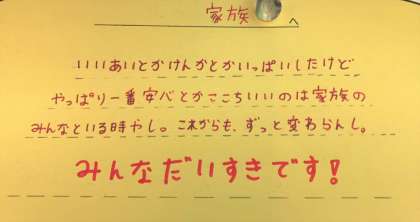 家族へ
いいあいとかけんかとかいっぱいしたけど
やっぱり一番安心とかここちいいのは家族の
みんなといる時やし。これからも、ずっと変わらんし。
みんなだいすきです!